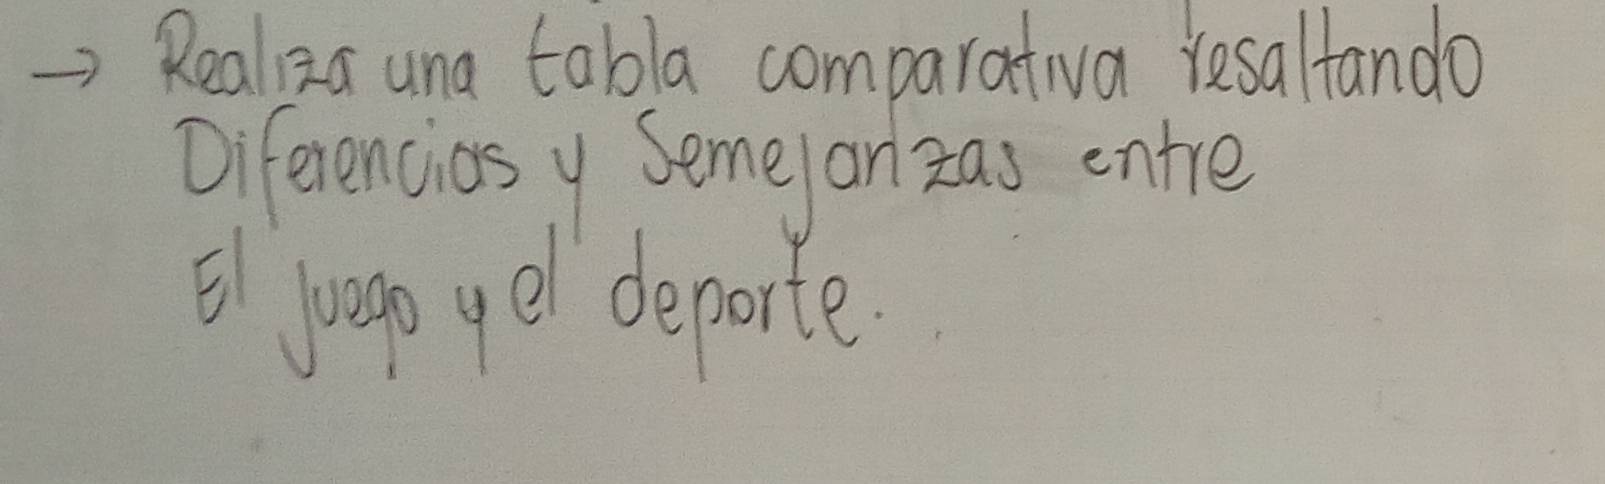 → Realiza una tabla comparativa resaltando
Diferencias y Semejanzas entre
El juego y el deporte.